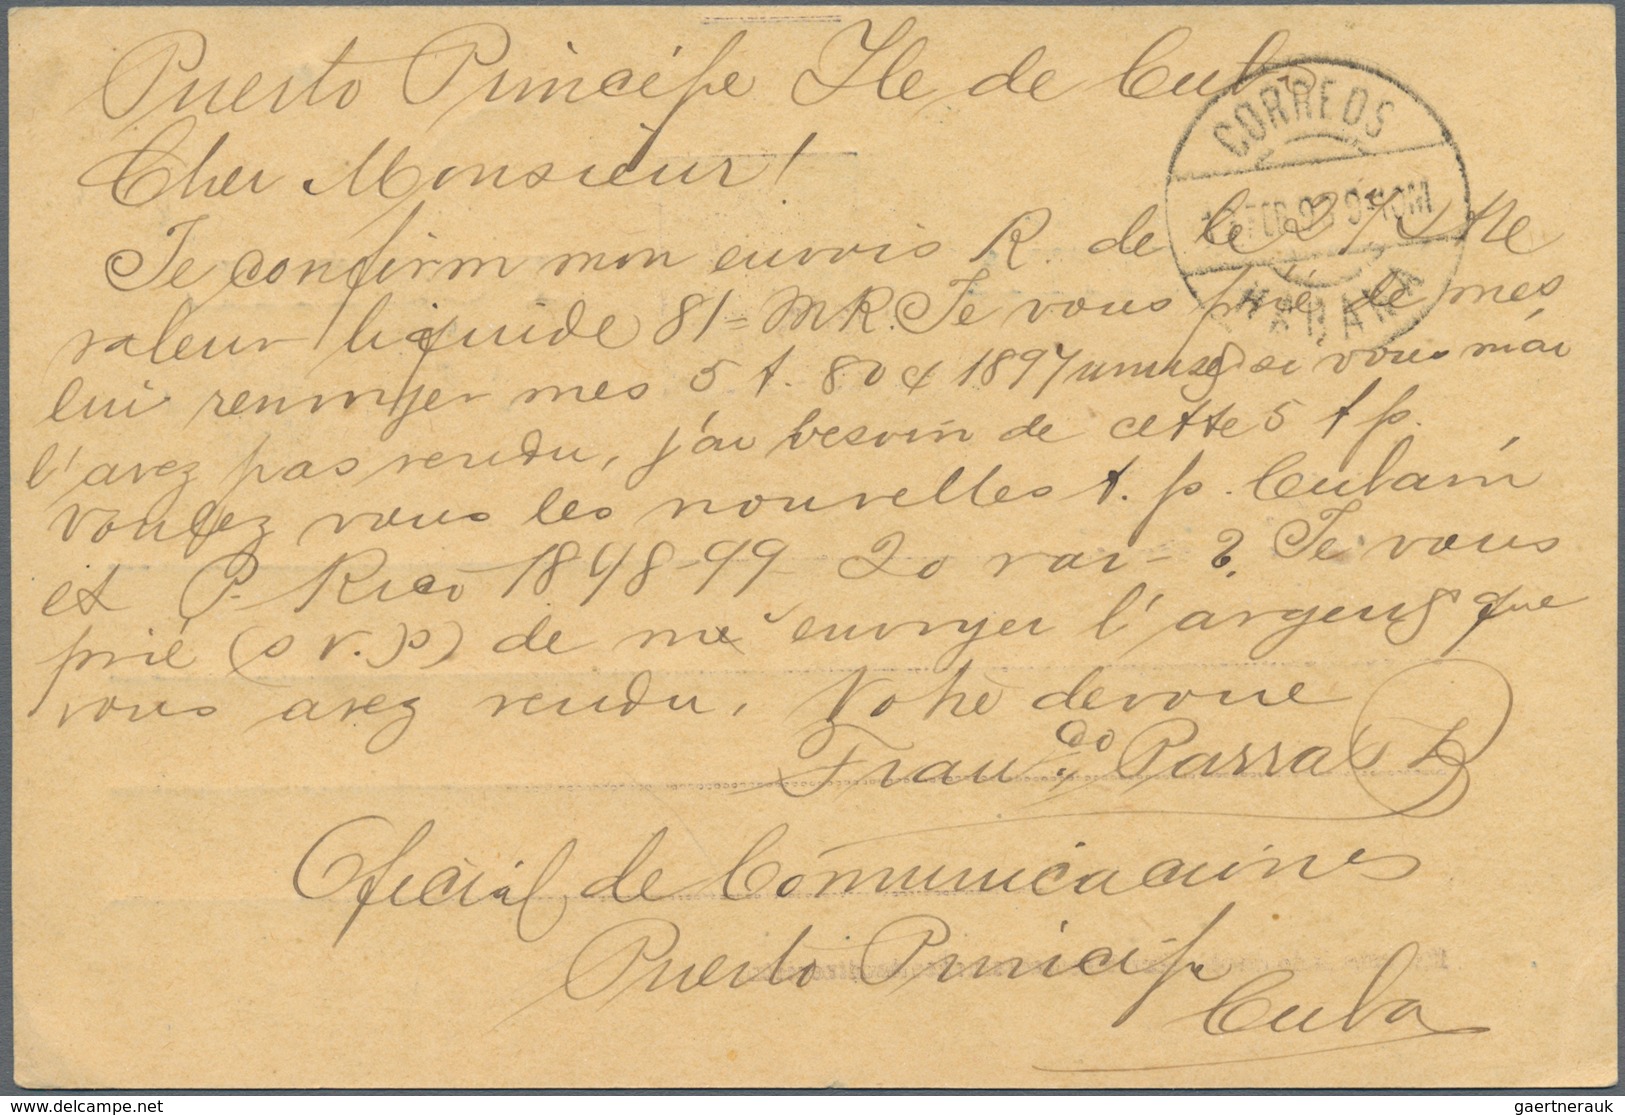 Puerto Principe Ile de Cuba
Cher Monsieur!
Je confirm mon envois R. de le
valeur liquide 81 = MR. Je vous prié de mes
lui renvoyer mes 5 t. 80 c 1897 si vous m'ai
l'avez pas rendu, j'ai besoin de cette 5 t p.
Voulez vous les nouvelles t. p. Cubain
et P. Rico 1898-99 20 var - ? Je vous
prié (s v. p) de me envoyer l'argent que
vous avez rendu. Votre devoue
Franco Parra
Oficial de Comunicaciones
Puerto Principe
Cuba
CORREOS
HABANA
www.delcampe.net
gaertnerauk